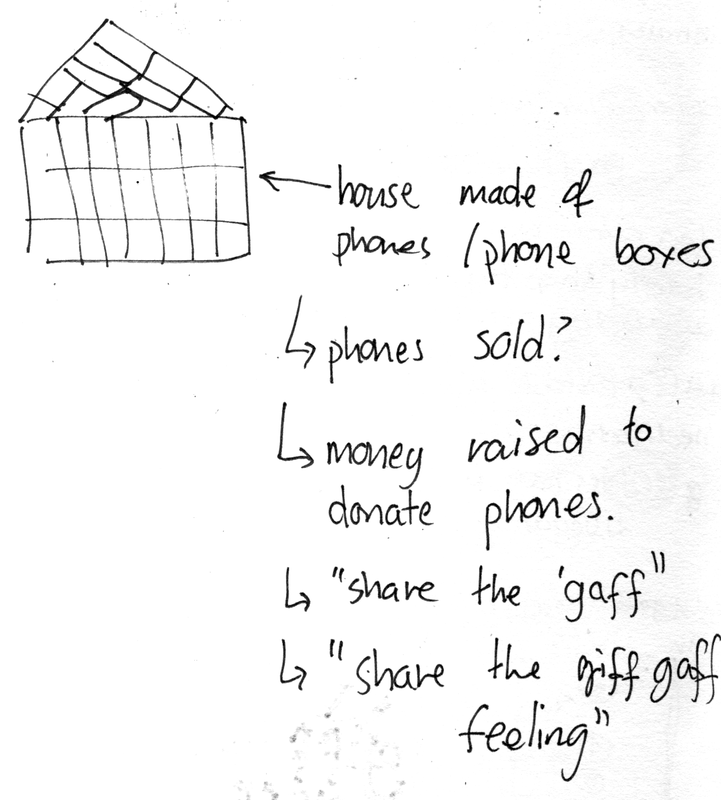 house made of
phones / phone boxes
phones sold?
money raised to
donate phones.
"share the 'gaff"
"share the giff gaff
feeling"